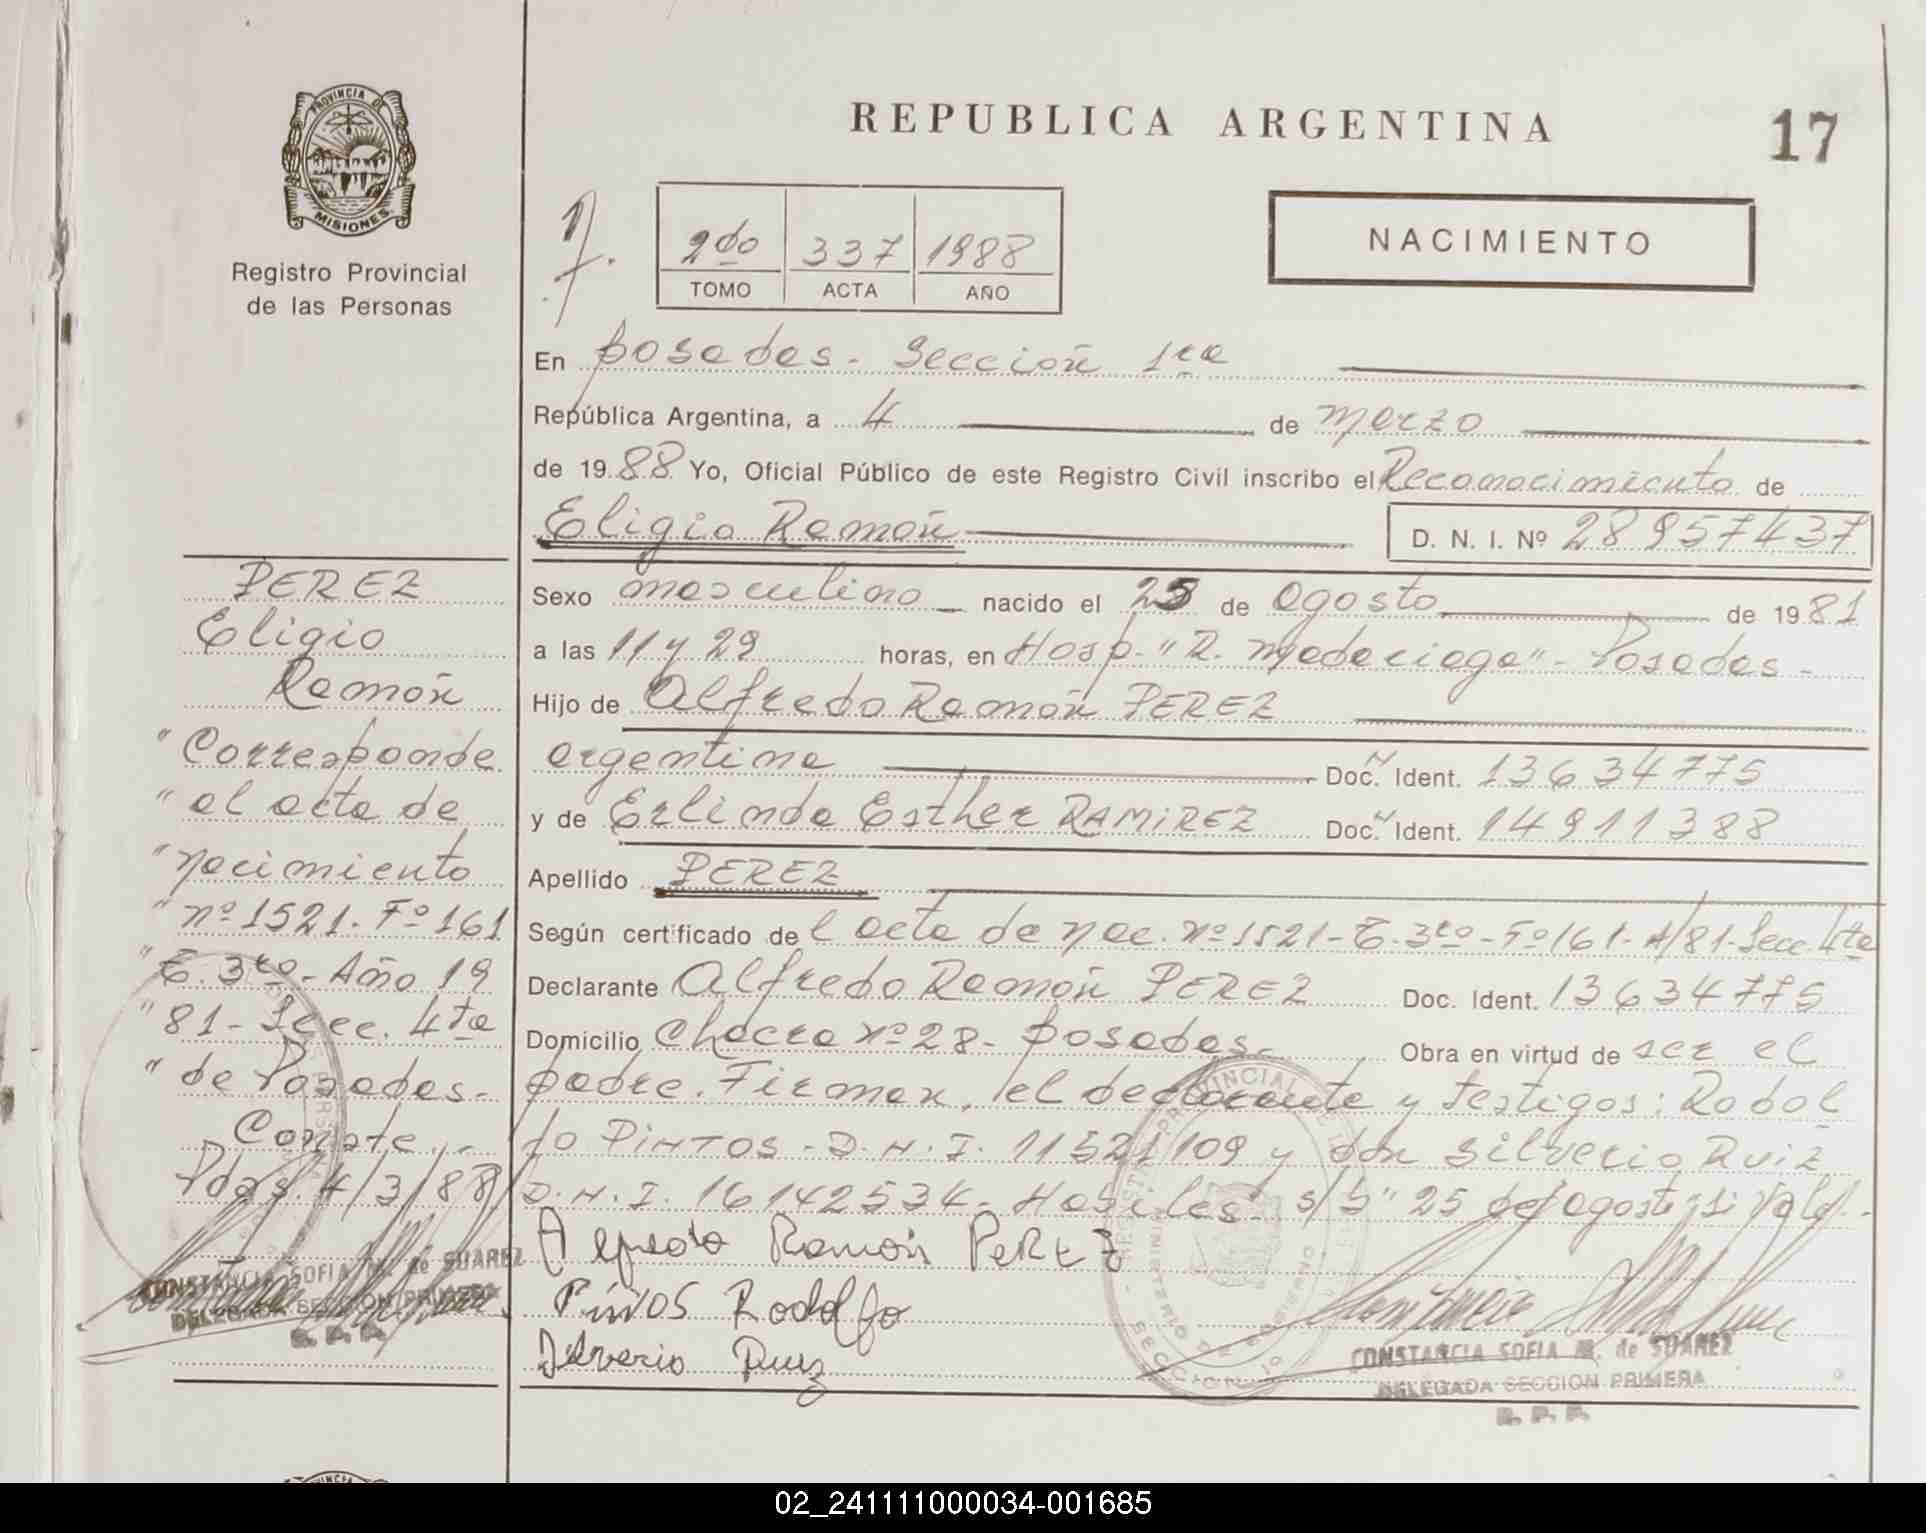 REPUBLICA ARGENTINA
17
PROVINCIA DE
MISIONES
Registro Provincial
de las Personas
2do 337 1988
TOMO ACTA AÑO
NACIMIENTO
En posadas - Sección 1ra
República Argentina, a 4 de marzo
de 1988 Yo, Oficial Público de este Registro Civil inscribo el Reconocimiento de
Eligio Ramón D. N. I. Nº 28957437
Sexo masculino nacido el 25 de agosto de 1981
a las 11 y 29 horas, en Hosp. "R. Madariaga" - Posadas -
Hijo de Alfredo Ramón PEREZ
argentina Doc. Ident. 13634775
y de Erlinda Esther RAMIREZ Doc. Ident. 14911388
Apellido PEREZ
Según certificado del acta de nac. nº 1521 - T. 3ro - Fº 161 - A/81 - Secc. 4ta
Declarante Alfredo Ramón PEREZ Doc. Ident. 13634775
Domicilio Chacra nº 28 - posadas - Obra en virtud de ser el
padre. Firman, el declarante y testigos: Rodol
fo PINTOS - D.N.I. 11521109 y don Silverio Ruiz
D.N.I. 16142534 - Hábiles - s/b "25 de agosto" si vale -
Alfredo Ramón PeREZ
Pintos Rodolfo
Silverio Ruiz
CONSTANCIA SOFIA M. de SUAREZ
DELEGADA SECCION PRIMERA
R. P. P.
PEREZ
Eligio
Ramón
"Corresponde
"al acta de
"nacimiento
"nº 1521. Fº 161
"T. 3ro - Año 19
"81 - Secc. 4ta
"de Posadas -
Conste.
Pdas. 4/3/88
CONSTANCIA SOFIA M. de SUAREZ
DELEGADA SECCION PRIMERA
R. P. P.
02_241111000034-001685